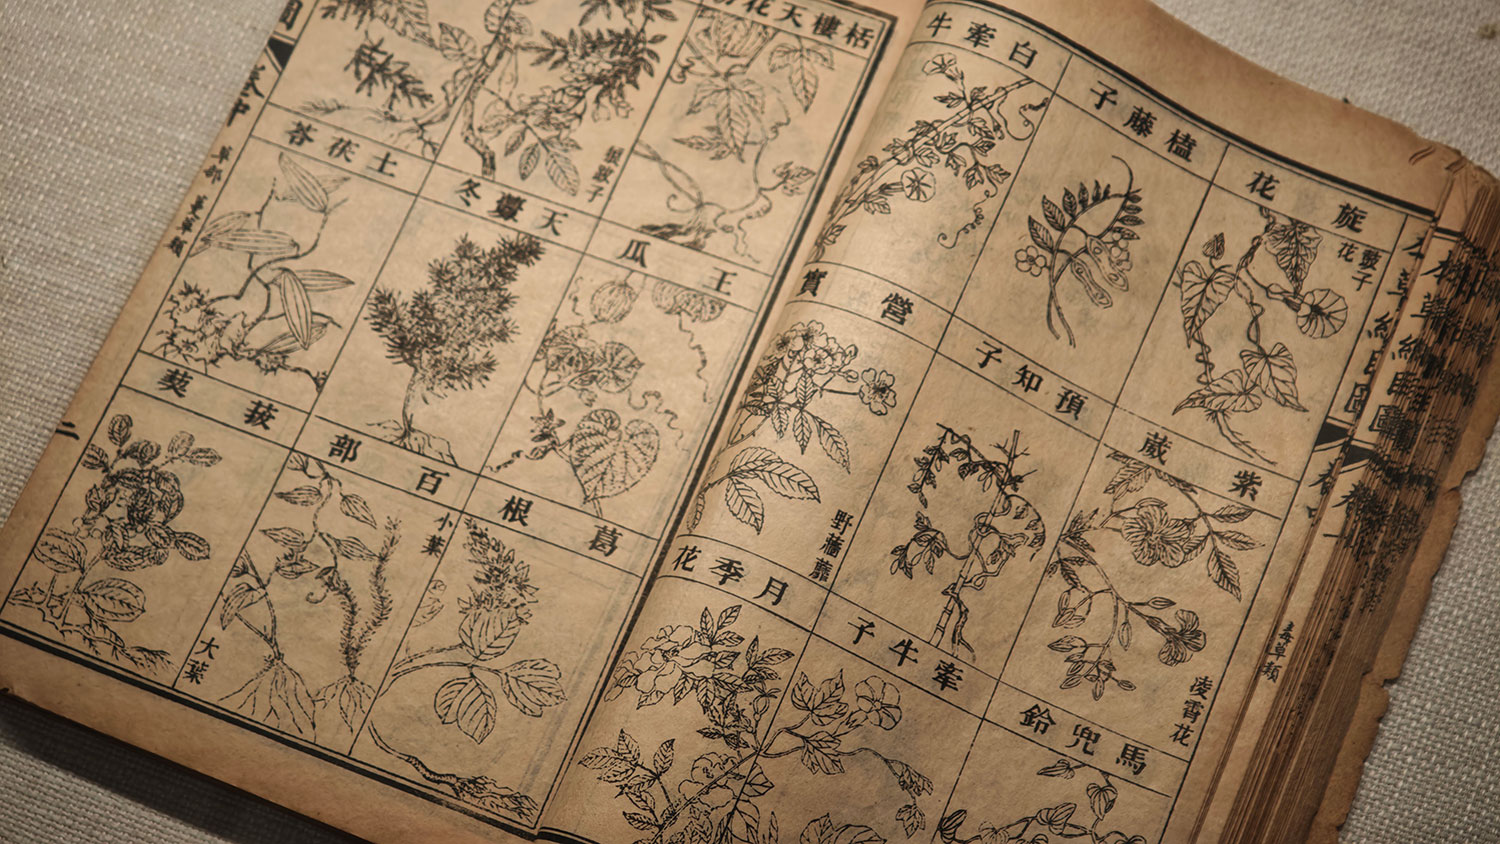 本草綱目圖
旋花
鼓子
花
榼藤子
白牽牛
紫葳
凌霄花
預知子
營實
馬兜鈴
牽牛子
月季花
毒草類
栝樓天花
王瓜
天虋冬
土茯苓
葛根
百部
小葉
大葉
菝葜
卷中
草部
蔓草類
二